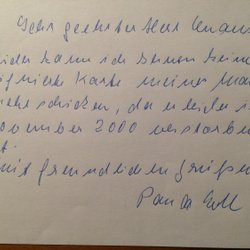 Sehr geehrter Herr
kann ich Ihnen keine
Karte meiner
schicken, da er leider i
november 2000 verstorb
t.
mit freundlichen Grüßen